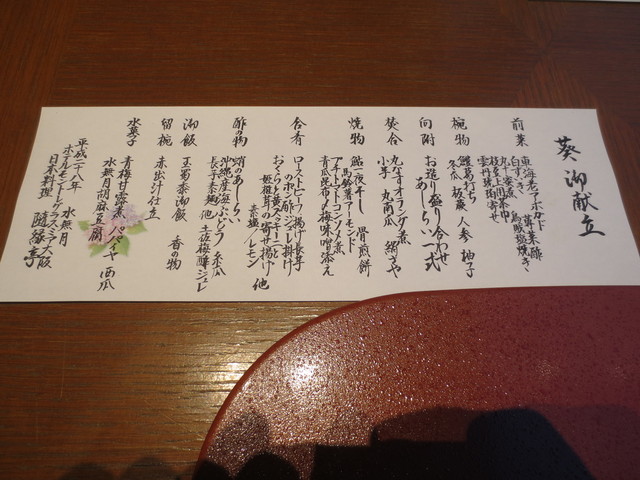 葵 御献立
前菜
東海老アボカド 葉酢
白ずいき 鳥 塩焼き
椀物
鱧葛打ち
冬瓜 板蕨 人参 柚子
向附
お造り盛り合わせ
あしらい一式
焚合
丸なすオランダ煮
小芋 丸南瓜 絹さや
焼物
鮎一夜干し 骨煎餅
馬鈴薯アーモンド
アスパラコンソメ煮
青瓜昆布〆梅味噌添え
合肴
ローストビーフ 揚げ長芋
のポン酢ジュレ掛け
おくらと黄ズッキーニと
姫椎茸の寄せ揚げ 他
素塩 レモン
酢の物
蛸のあしらい
沖縄産海ぶどう 糸瓜
長芋素麺 他 土佐梅酢ジュレ
御飯
玉蜀黍御飯 香の物
留椀
赤出汁仕立
水菓子
青梅甘露煮 パパイヤ 西瓜
水無月胡麻豆腐
平成二十八年 水無月
ホテルモントレグラスミア大阪
日本料理 随縁亭